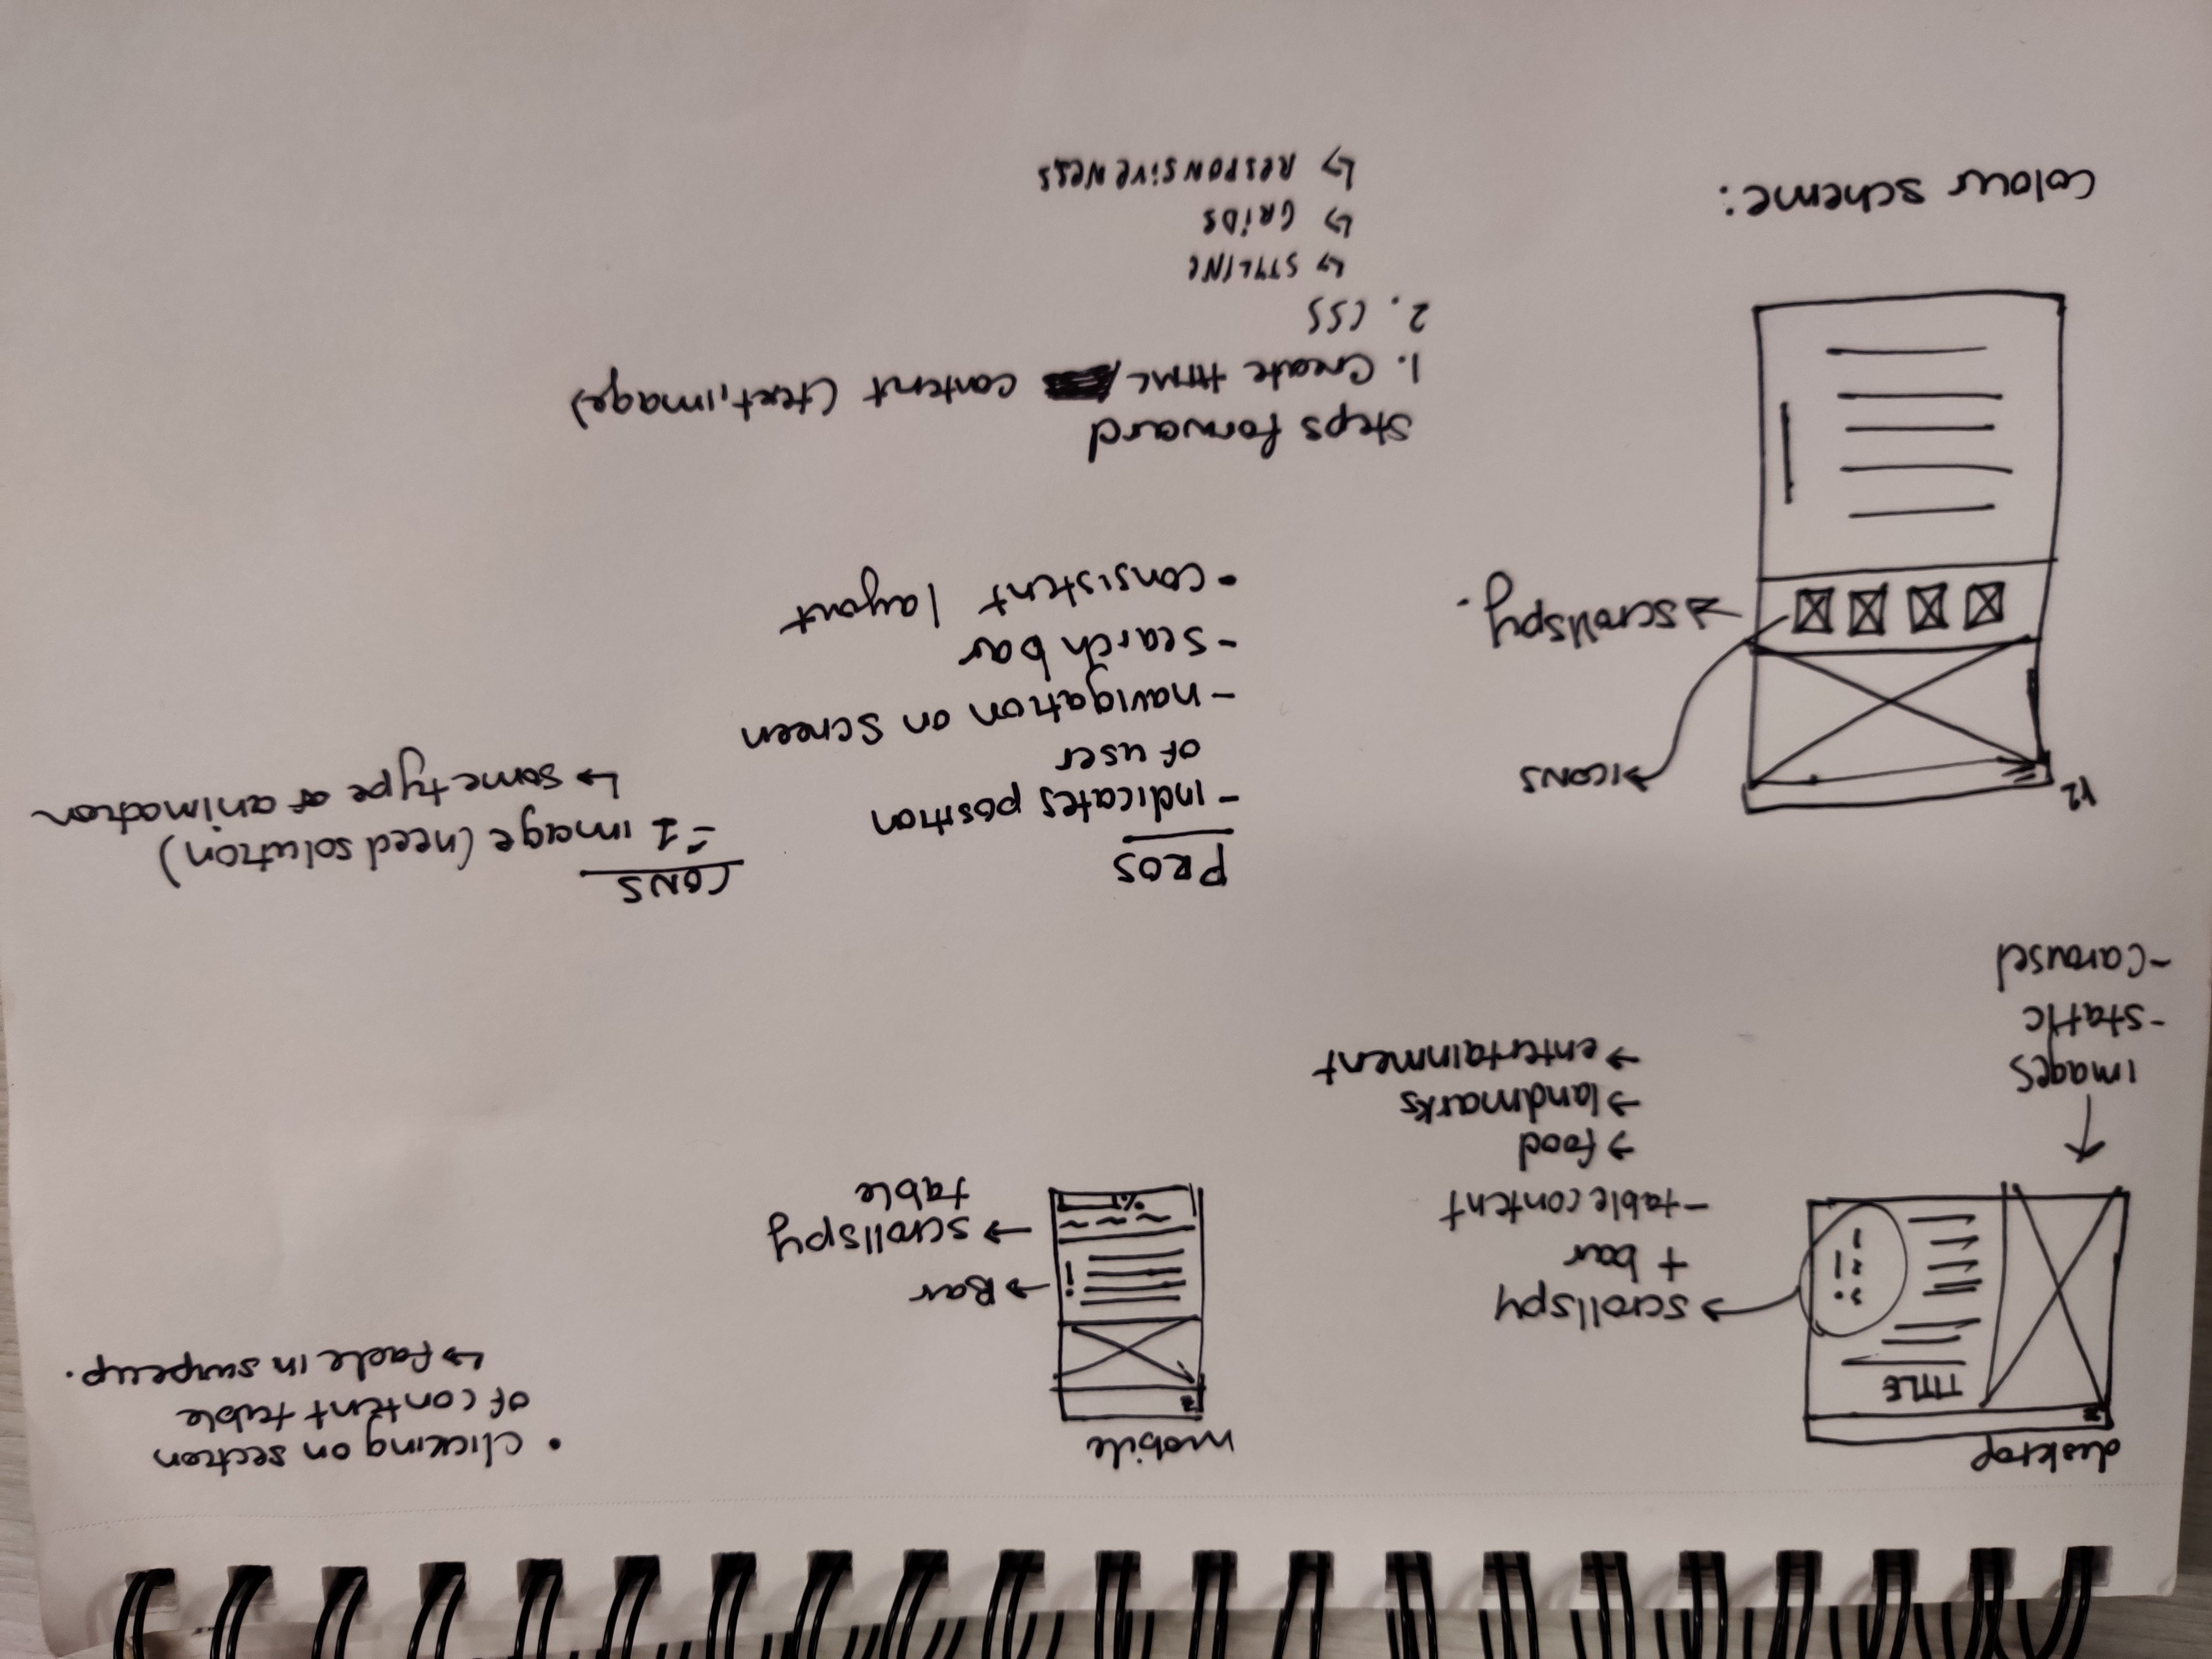 desktop
TITLE
→ scrollspy
+ bar
- table content
→ food
→ landmarks
→ entertainment
images
- static
- carousel
mobile
→ Bar
→ scrollspy
table
• clicking on section
of content table
↳ fade in
V2
→ icons
→ scrollspy.
PROS
- indicates position
of user
- navigation on screen
- search bar
• consistent layout
CONS
- 1 image (need solution)
↳ some type of animation
Steps forward
1. Create HTML content (text, image)
2. CSS
↳ STYLING
↳ GRIDS
↳ RESPONSIVENESS
Colour scheme: